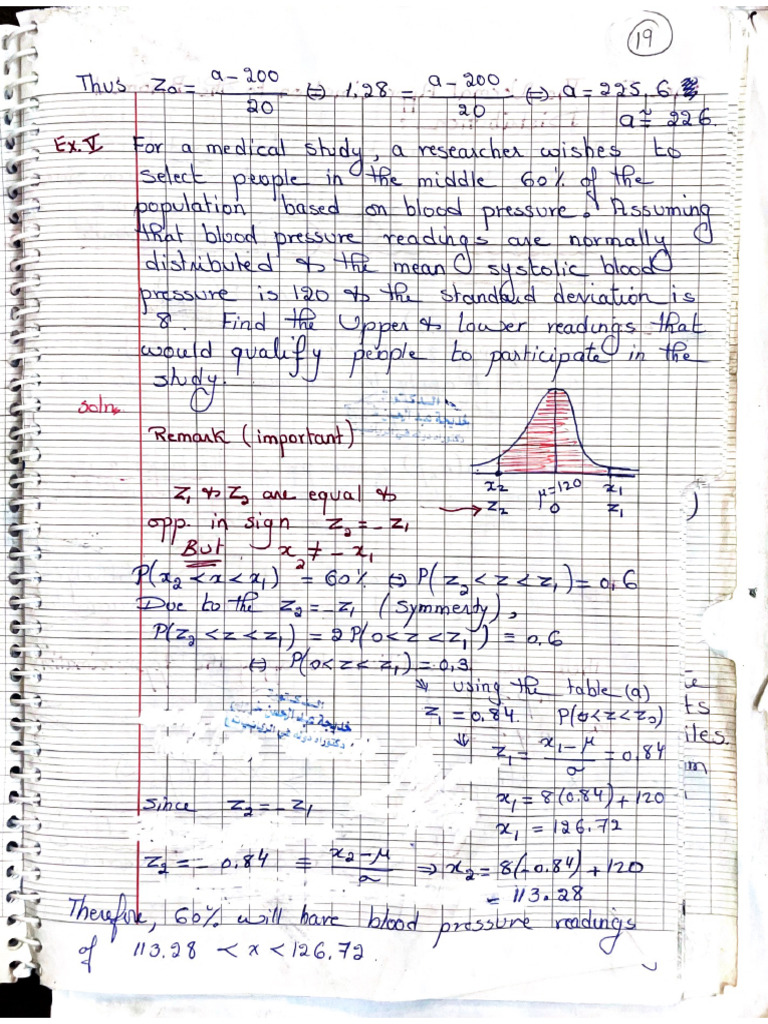 19
Thus Z₀ = (a - 200)/20 ⇔ 1,28 = (a - 200)/20 ⇔ a = 225,6
a ≅ 226.
Ex.V For a medical study, a researcher wishes to
select people in the middle 60% of the
population based on blood pressure. Assuming
that blood pressure readings are normally
distributed & the mean systolic blood
pressure is 120 & the standard deviation is
8. Find the Upper & lower readings that
would qualify people to participate in the
study.
soln.
Remark (important)
x₂ μ=120 x₁
Z₂ 0 Z₁
Z₁ & Z₂ are equal &
opp. in sign Z₂ = - Z₁
But x₂ ≠ - x₁
P(x₂ < x < x₁) = 60% ⇔ P(Z₂ < Z < Z₁) = 0,6
Due to the Z₂ = -Z₁ (Symmerty),
P(Z₂ < Z < Z₁) = 2 P(0 < Z < Z₁) = 0.6
⇔ P(0 < Z < Z₁) = 0,3
⇓ using the table (a)
Z₁ = 0.84. P(0 < Z < Z₀)
⇓ Z₁ = (x₁ - μ)/σ = 0,84
x₁ = 8(0.84) + 120
x₁ = 126.72
Since Z₂ = - Z₁
Z₂ = - 0.84 = (x₂ - μ)/σ ⇒ x₂ = 8(-0.84) + 120
= 113.28
Therefore, 60% will have blood pressure readings
of 113.28 < x < 126.72.
ts
iles.
m